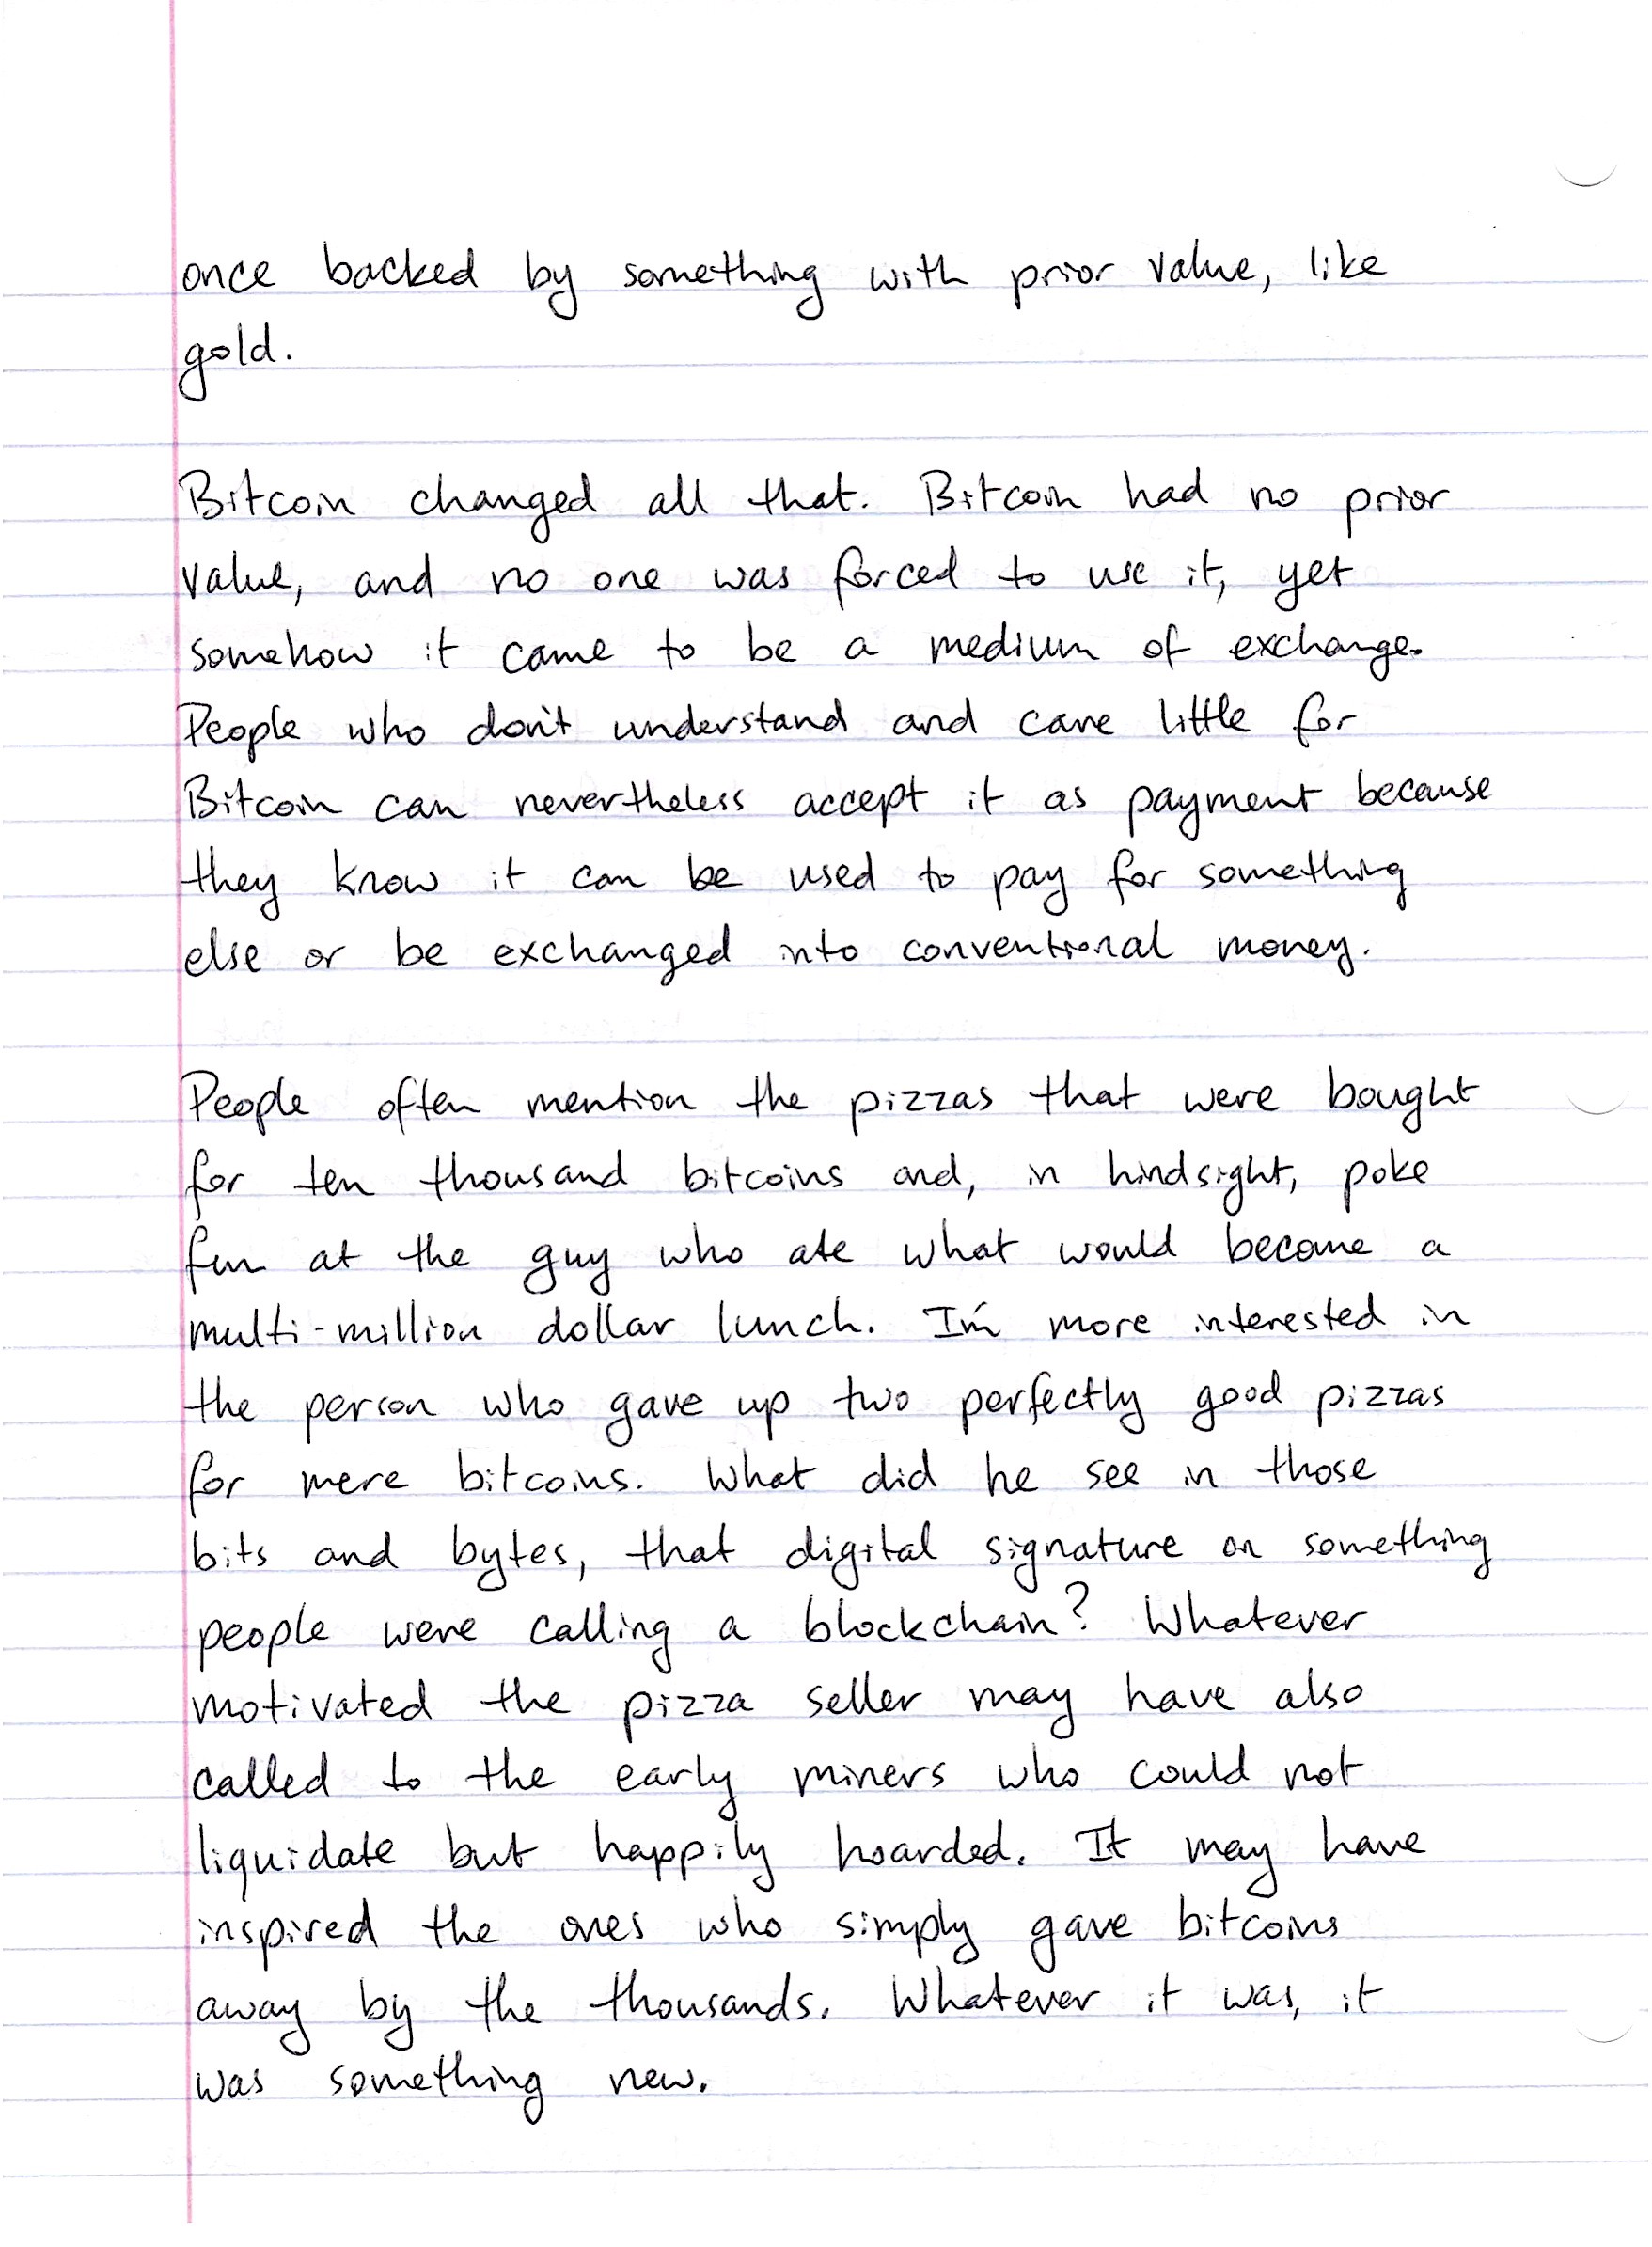 once backed by something with prior value, like
gold.
Bitcoin changed all that. Bitcoin had no prior
value, and no one was forced to use it, yet
somehow it came to be a medium of exchange.
People who don't understand and care little for
Bitcoin can nevertheless accept it as payment because
they know it can be used to pay for something
else or be exchanged into conventional money.
People often mention the pizzas that were bought
for ten thousand bitcoins and, in hindsight, poke
fun at the guy who ate what would become a
multi-million dollar lunch. I'm more interested in
the person who gave up two perfectly good pizzas
for mere bitcoins. What did he see in those
bits and bytes, that digital signature on something
people were calling a blockchain? Whatever
motivated the pizza seller may have also
called to the early miners who could not
liquidate but happily hoarded. It may have
inspired the ones who simply gave bitcoins
away by the thousands. Whatever it was, it
was something new.